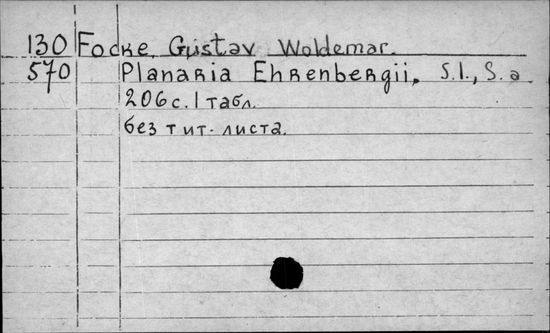 130 Focke, Gustav Woldemar.
570 Planaria Ehrenbergii, S.l., S.a
206 с. 1 табл.
без тит. листа.